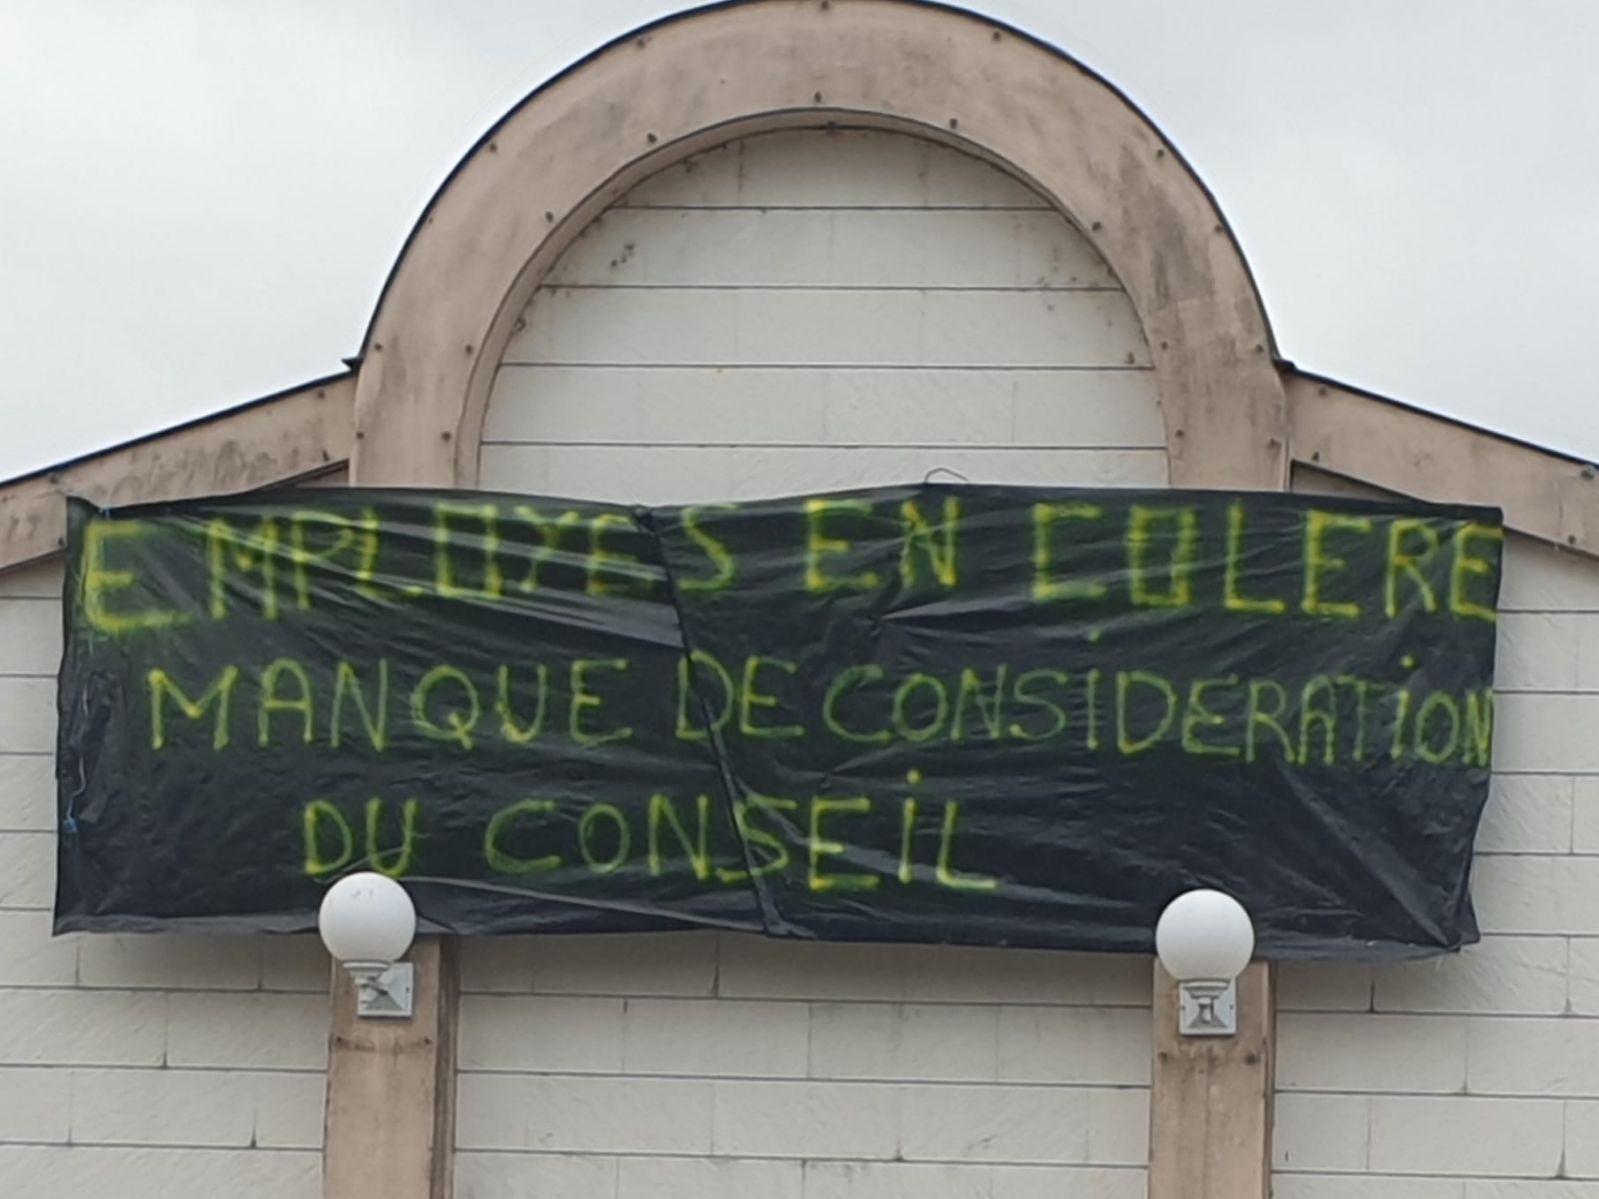 EMPLOYES EN COLERE
MANQUE DE CONSIDERATION
DU CONSEIL